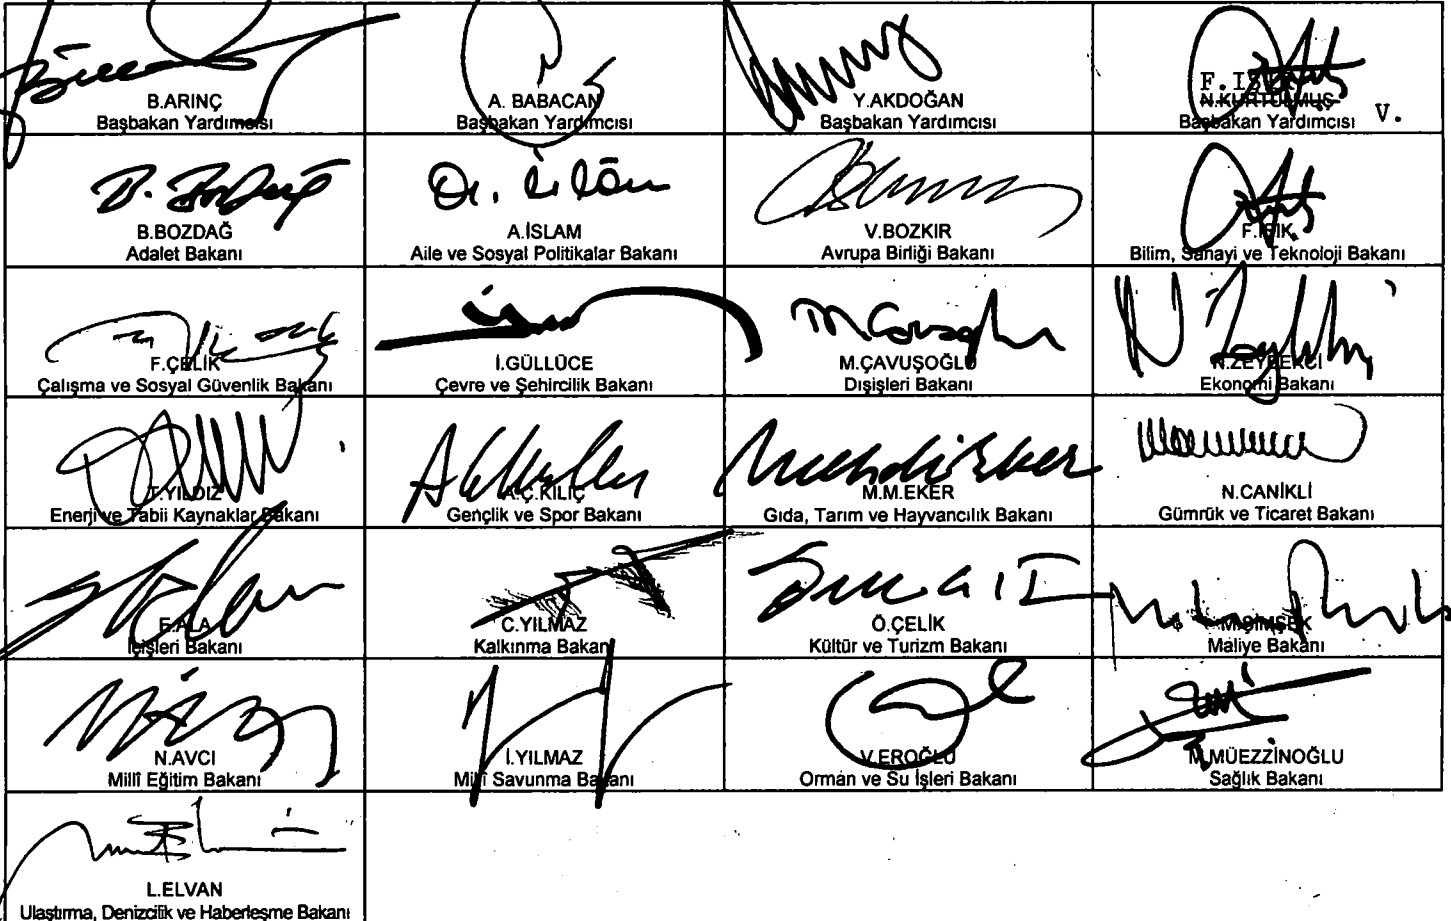 B.ARINÇ
Başbakan Yardımcısı
A. BABACAN
Başbakan Yardımcısı
Y.AKDOĞAN
Başbakan Yardımcısı
F.IŞIK
N.KURTULMUŞ
Başbakan Yardımcısı V.
B. Bozdağ
B.BOZDAĞ
Adalet Bakanı
A.İSLAM
Aile ve Sosyal Politikalar Bakanı
V.BOZKIR
Avrupa Birliği Bakanı
F.IŞIK
Bilim, Sanayi ve Teknoloji Bakanı
F.ÇELİK
Çalışma ve Sosyal Güvenlik Bakanı
İ.GÜLLÜCE
Çevre ve Şehircilik Bakanı
M.ÇAVUŞOĞLU
Dışişleri Bakanı
N.ZEYBEKCİ
Ekonomi Bakanı
T.YILDIZ
Enerji ve Tabii Kaynaklar Bakanı
A.Ç.KILIÇ
Gençlik ve Spor Bakanı
Mehdi Eker
M.M.EKER
Gıda, Tarım ve Hayvancılık Bakanı
N.CANİKLİ
Gümrük ve Ticaret Bakanı
E.ALA
İçişleri Bakanı
C.YILMAZ
Kalkınma Bakanı
Ö.ÇELİK
Kültür ve Turizm Bakanı
M.ŞİMŞEK
Maliye Bakanı
N.AVCI
Millî Eğitim Bakanı
İ.YILMAZ
Millî Savunma Bakanı
V.EROĞLU
Orman ve Su İşleri Bakanı
M.MÜEZZİNOĞLU
Sağlık Bakanı
L.ELVAN
Ulaştırma, Denizcilik ve Haberleşme Bakanı